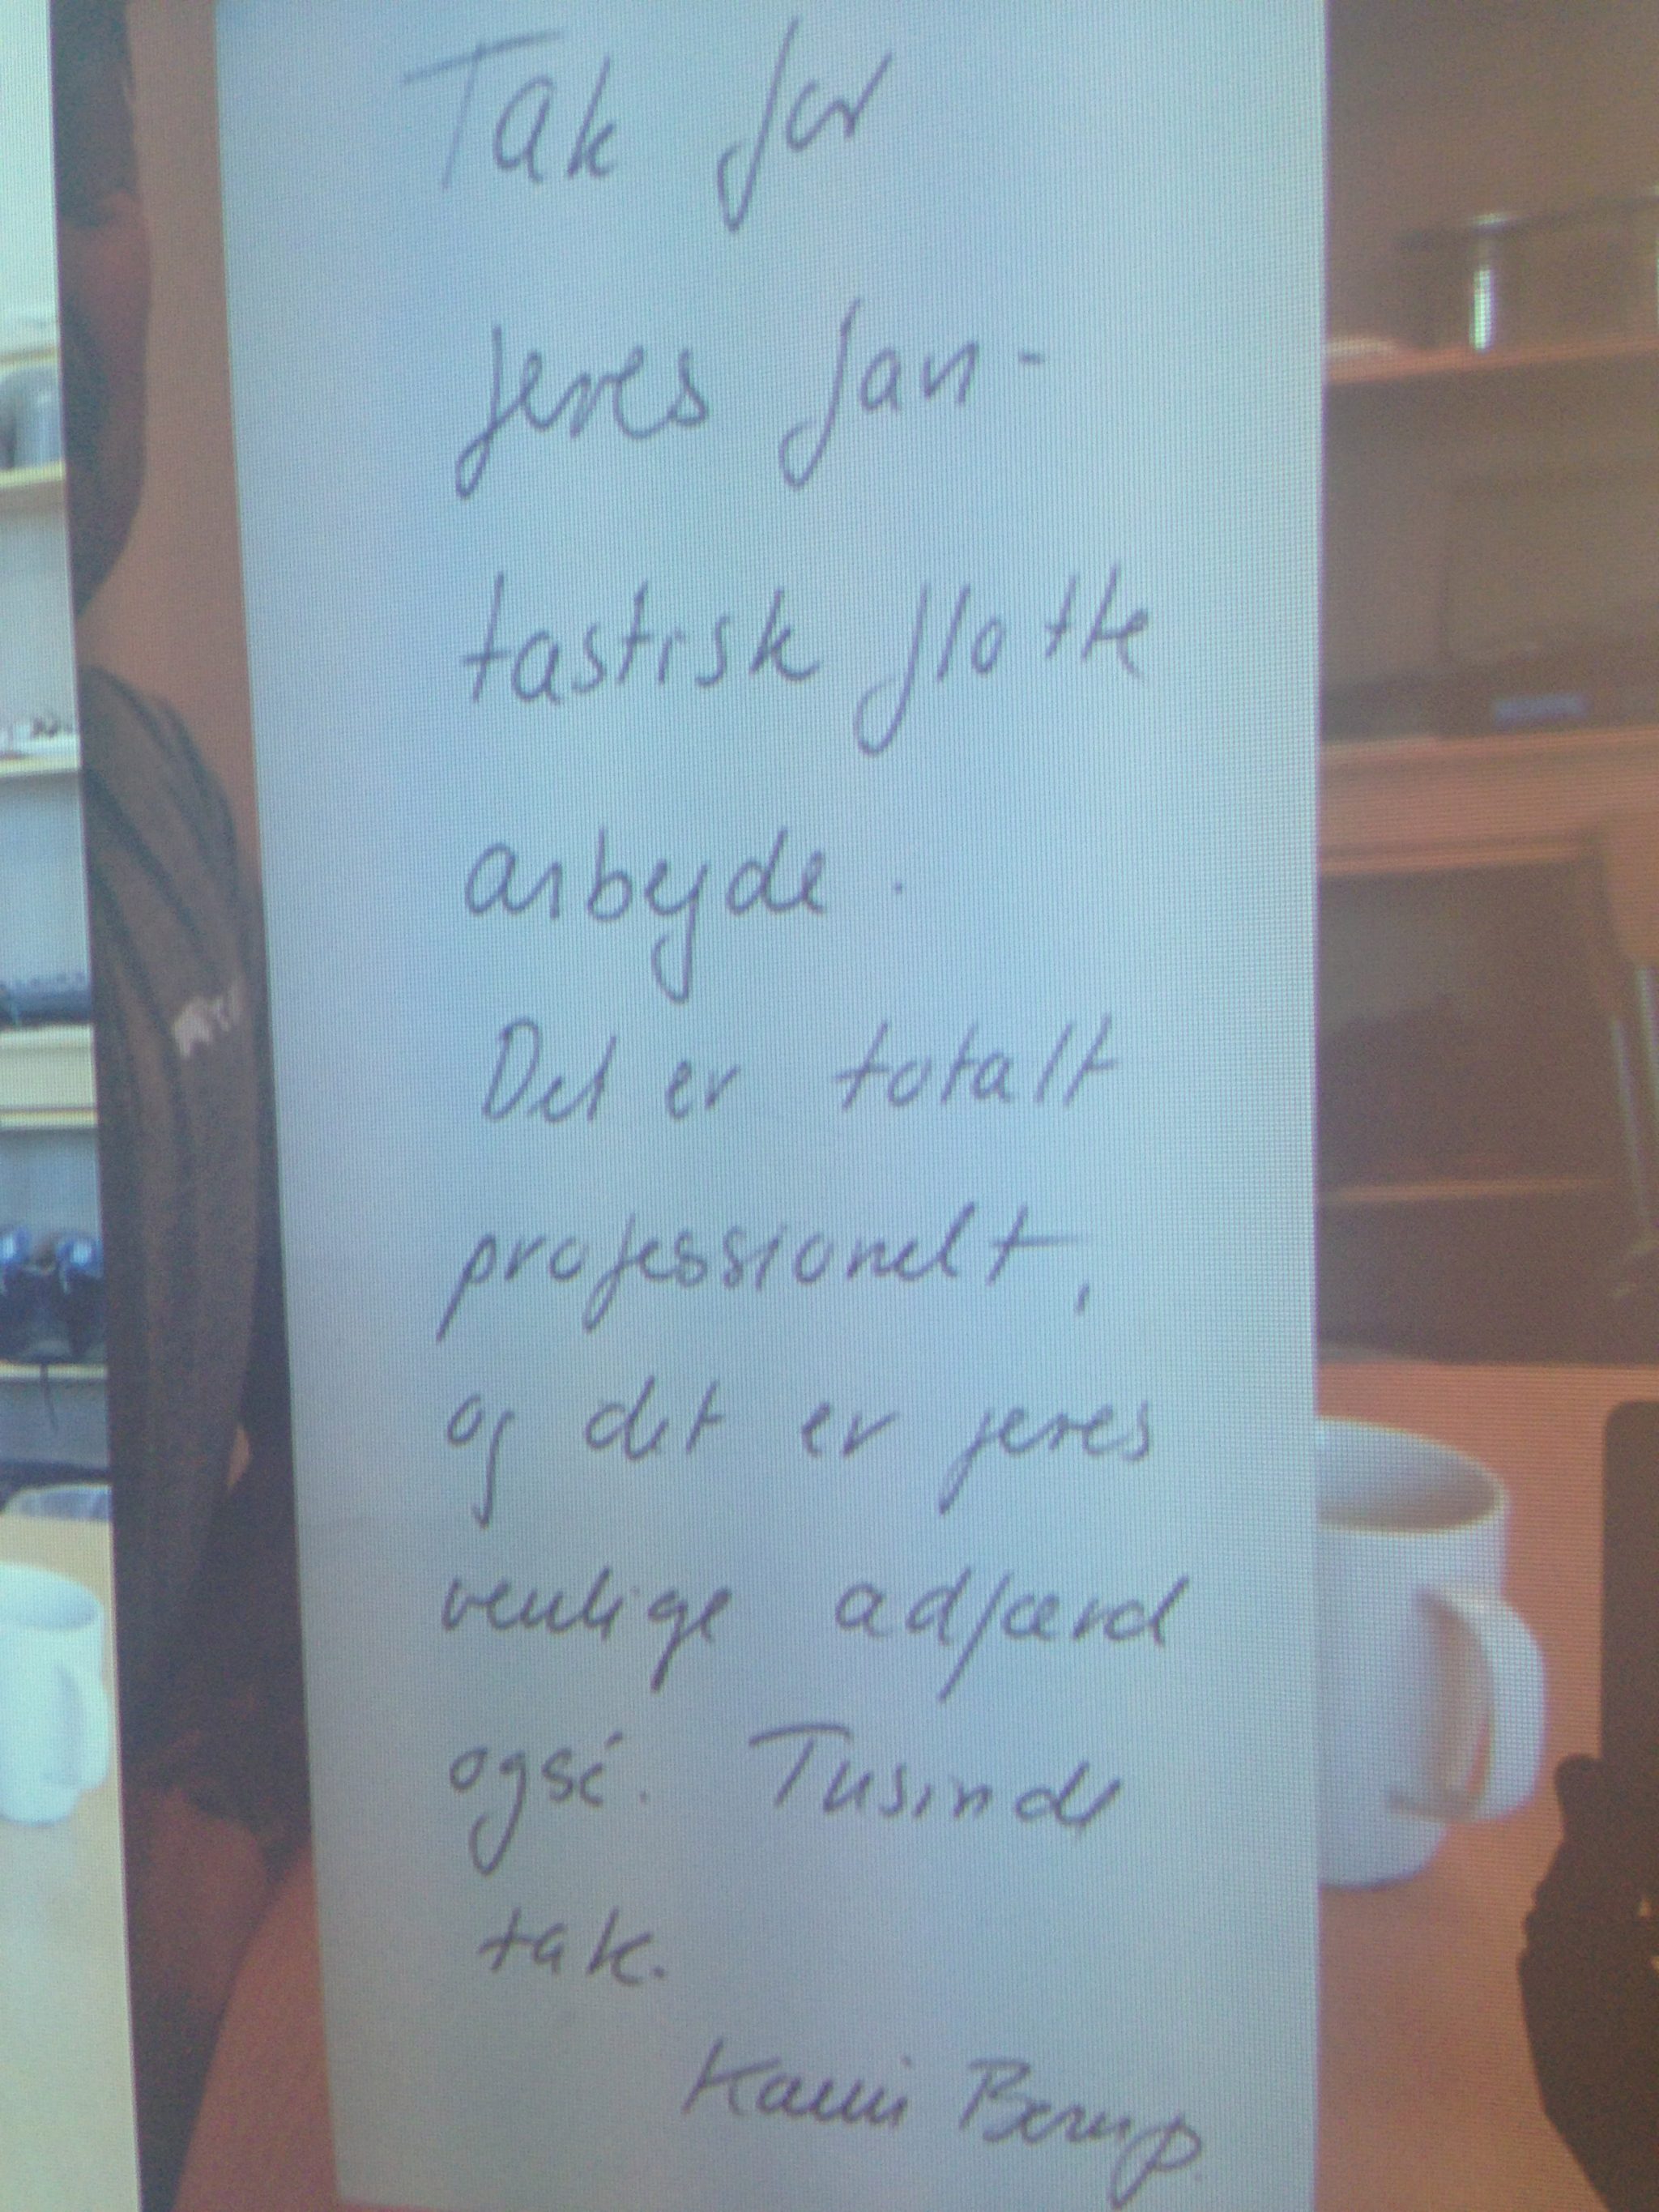 Tak for
jeres fan-
tastisk flotte
arbejde.
Det er totalt
professionelt,
og det er jeres
venlige adfærd
også. Tusinde
tak.